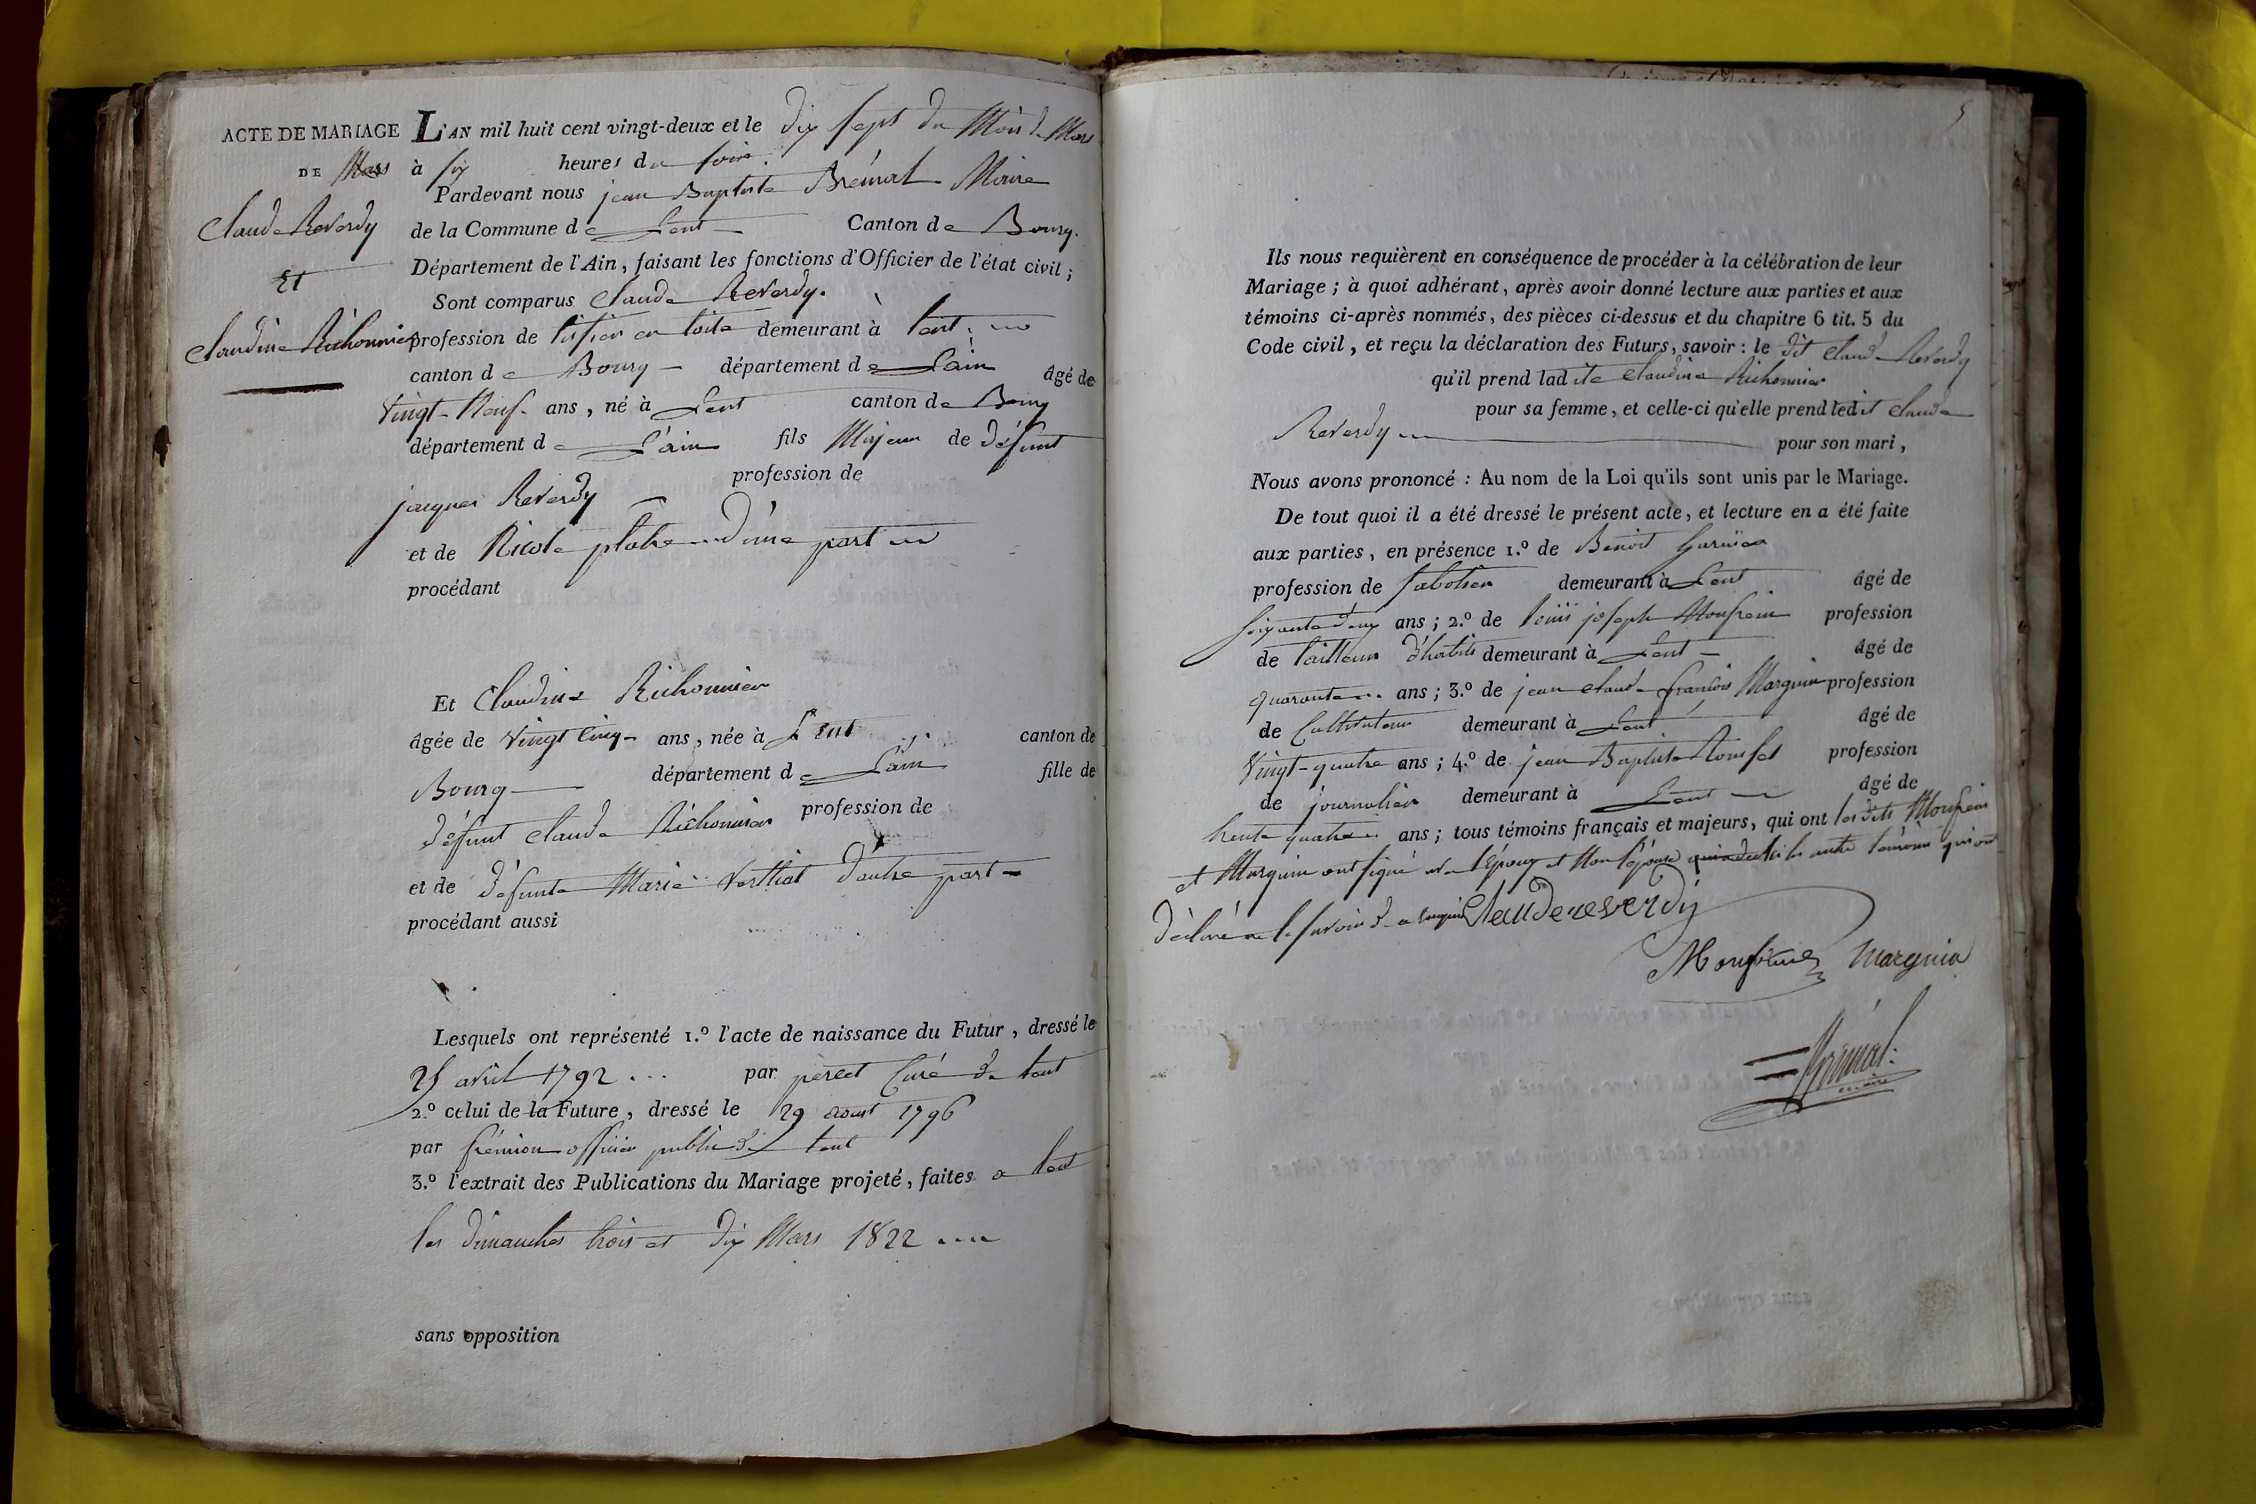 ACTE DE MARIAGE
DE Mars
Claude Reverdy
Et
Claudine Richonnier
L'AN mil huit cent vingt-deux et le dix sept du Mois de Mars
à six heures du soir.
Pardevant nous jean Baptiste Brénat Maire
de la Commune de Lent Canton de Bourg.
Département de l'Ain, faisant les fonctions d'Officier de l'état civil;
Sont comparus Claude Reverdy.
profession de tissier en toile demeurant à Lent
canton de Bourg département de L'ain âgé de
Vingt-Neuf ans, né à Lent canton de Bourg
département de L'ain fils Majeur de défunt
jacques Reverdy profession de
et de Nicole plâtre d'une part
procédant
Et Claudine Richonnier
âgée de Vingt Cinq ans, née à Lent canton de
Bourg département de L'ain fille de
défunt Claude Richonnier profession de
et de défunte Marie Verthiat d'autre part
procédant aussi
Lesquels ont représenté 1.º l'acte de naissance du Futur, dressé le
25 avril 1792 ... par percet Curé de Lent
2.º celui de la Future, dressé le 29 aoust 1796
par frémion officier public de Lent
3.º l'extrait des Publications du Mariage projeté, faites a Lent
les dimanches trois et dix Mars 1822
sans opposition
5
Ils nous requièrent en conséquence de procéder à la célébration de leur
Mariage; à quoi adhérant, après avoir donné lecture aux parties et aux
témoins ci-après nommés, des pièces ci-dessus et du chapitre 6 tit. 5 du
Code civil, et reçu la déclaration des Futurs, savoir: le dit Claude Reverdy
qu'il prend ladite Claudine Richonnier
pour sa femme, et celle-ci qu'elle prend ledit Claude
Reverdy pour son mari,
Nous avons prononcé: Au nom de la Loi qu'ils sont unis par le Mariage.
De tout quoi il a été dressé le présent acte, et lecture en a été faite
aux parties, en présence 1.º de Benoit Garnier
profession de sabotier demeurant à Lent âgé de
soixante deux ans; 2.º de Louis joseph Monfrein profession
de tailleur d'habits demeurant à Lent âgé de
quarante ans; 3.º de jean claude françois Marguin profession
de Cultivateur demeurant à Lent âgé de
Vingt-quatre ans; 4.º de jean Baptiste profession
de journalier demeurant à Lent âgé de
trente quatre ans; tous témoins français et majeurs, qui ont les dits Monfrein
et Marguin ont signé avec l'Epoux et Non l'épouse les autre témoins qui ont
déclaré ne le savoir de ce requis Claude reverdy
Monfrein Marguin
Brénat
maire